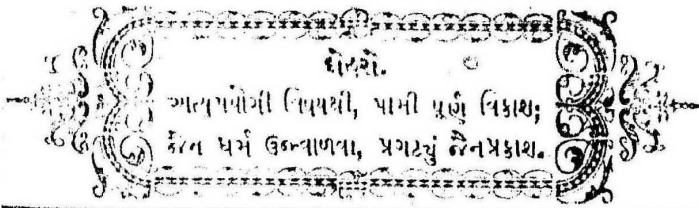 દોહરો.
અત્યુપયોગી વિષયથી, પામી પૂર્ણ વિકાશ;
જૈન ધર્મ ઉજ્વાળવા, પ્રગટ્યું જૈનપ્રકાશ.